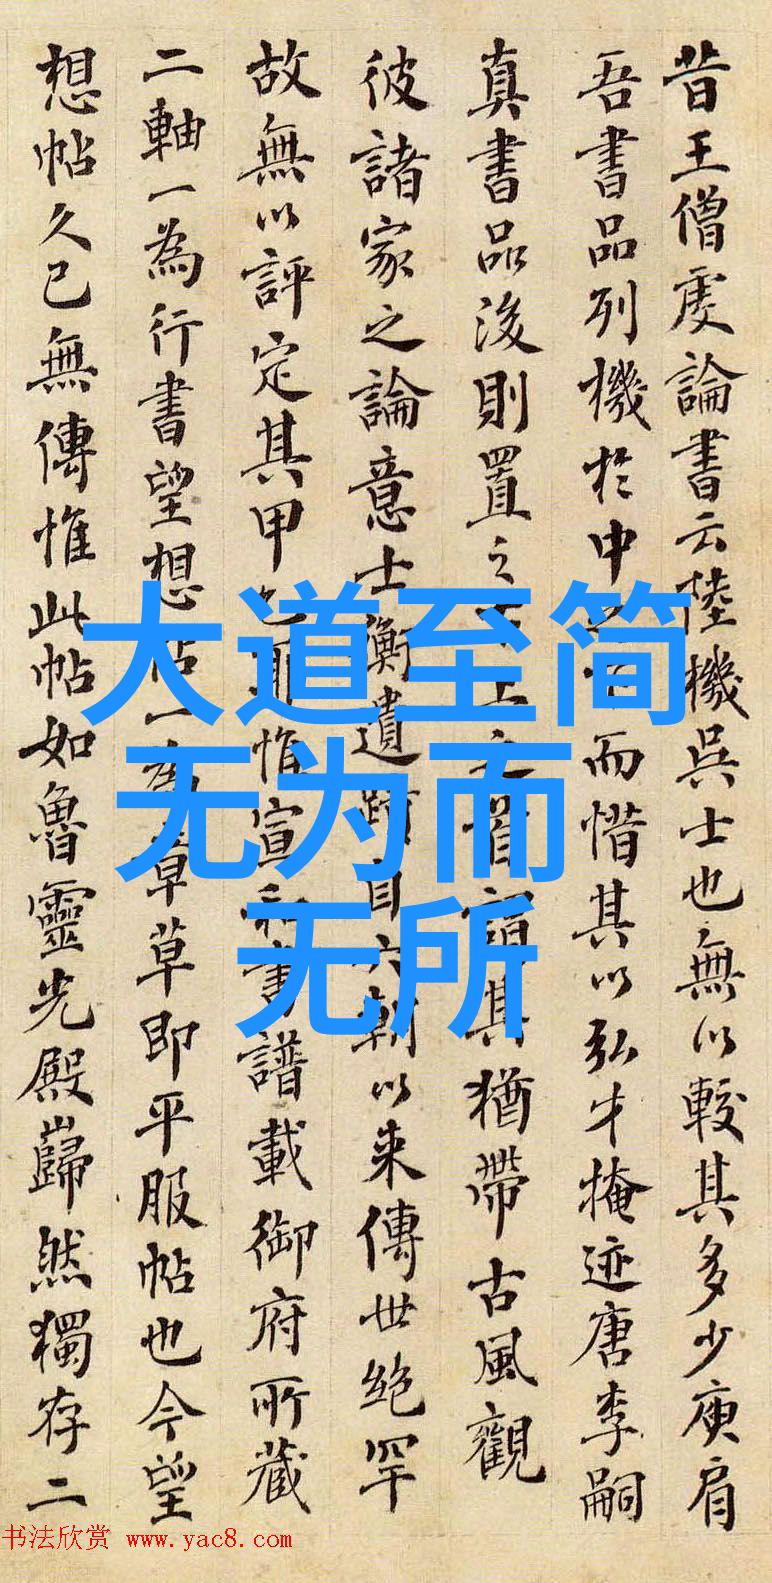 昔王僧虔論書云陸機吳士也無以較其多少庾肩
吾書品列機於中之下而惜其以弘才掩迹唐李嗣
真書品後則置之下上之首謂其猶帶古風觀
彼諸家之論意士衡遺蹟自六朝以来傳世絶罕
故無以評定其甲乙耶惟宣和書譜載御府所藏
二軸一為行書望想帖一為章草即平服帖也今望
想帖久已無傳惟此帖如魯靈光殿巋然獨存二
大道至简
无为而
无所
书法欣赏 www.yac8.com